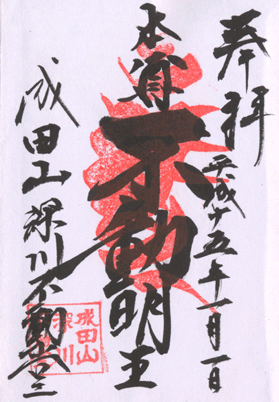 奉拝
平成十五年十一月一日
本尊
不動明王
成田山深川不動堂
成田山
深川